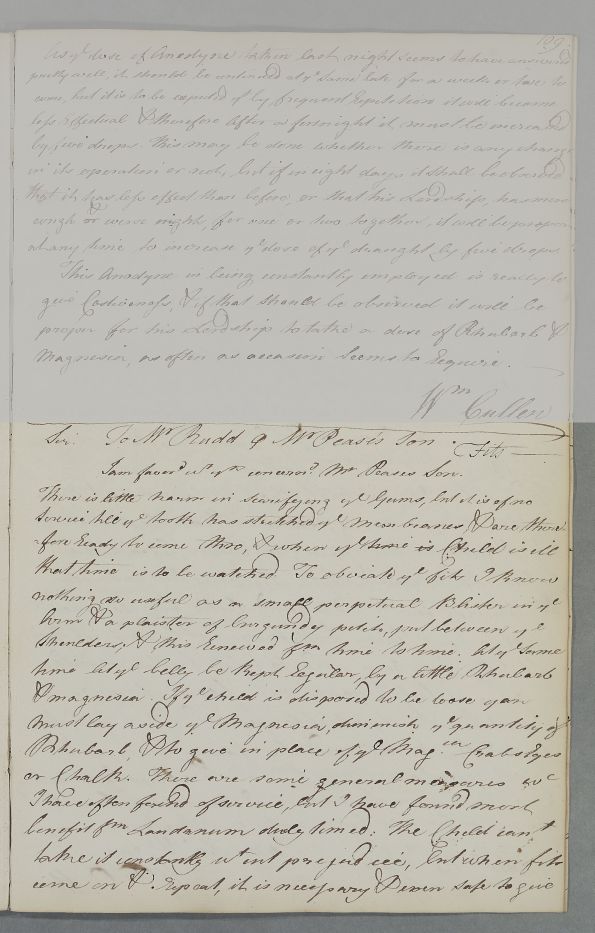 109
As yᵉ dose of Anodyne taken last night seems to have answered
pretty well, it should be continued at yᵉ same rate for a week or two to
come, but it is to be expected yᵗ by frequent repetition it will become
less effectual & therefore after a fortnight it must be increased
by five drops. This may be done whether there is any change
in its operation or not, but if in eight days it shall be observed
that it has less effect than before, or that his Lordship has more
cough or worse night, for one or two together, it will be proper
at any time to increase yᵉ dose of yᵉ draught by five drops
This Anodyne in being constantly employed is ready to
give Costiveness, & if that should be observed it will be
proper for his Lordship to take a dose of Rhubarb &
Magnesia, as often as occasion seems to require.
Wᵐ Cullen
Sir. To Mʳ Rudd 9 Mʳ Pease's Son. Fits
I am favorᵈ wᵗ yʳˢ concernᵍ Mʳ Peases Son.
There is little harm in scarifying yᵉ Gums, but it is of no
service till yᵉ tooth has stretched yᵉ membranes, & are there
fore ready to come thro, & when yᵉ time is Child is ill
that time is to be watched To obviate yᵉ fits I know
nothing so useful as a small perpetual Blister in yᵉ
Arm & a plaister of burgundy pitch, put between yᵉ
Shoulders, & this renewed fᵐ time to time. At yᵉ same
time let yᵉ belly be kept regular, by a little Rhubarb
& magnesia. If yᵉ child is disposed to be loose you
must lay aside yᵉ Magnesia, diminish yᵉ quantity of
Rhubarb, & to give in place of yᵉ Magⁱᵃ Crabs Eyes
or Chalk. There are some general measures wᶜ
I have often found of service, but I have found most
benefit fᵐ Laudanum duly timed: The Child canᵗ
take it constantly wᵗout prejudice, but when fits
come on & repeat, it is necessary & even safe to give